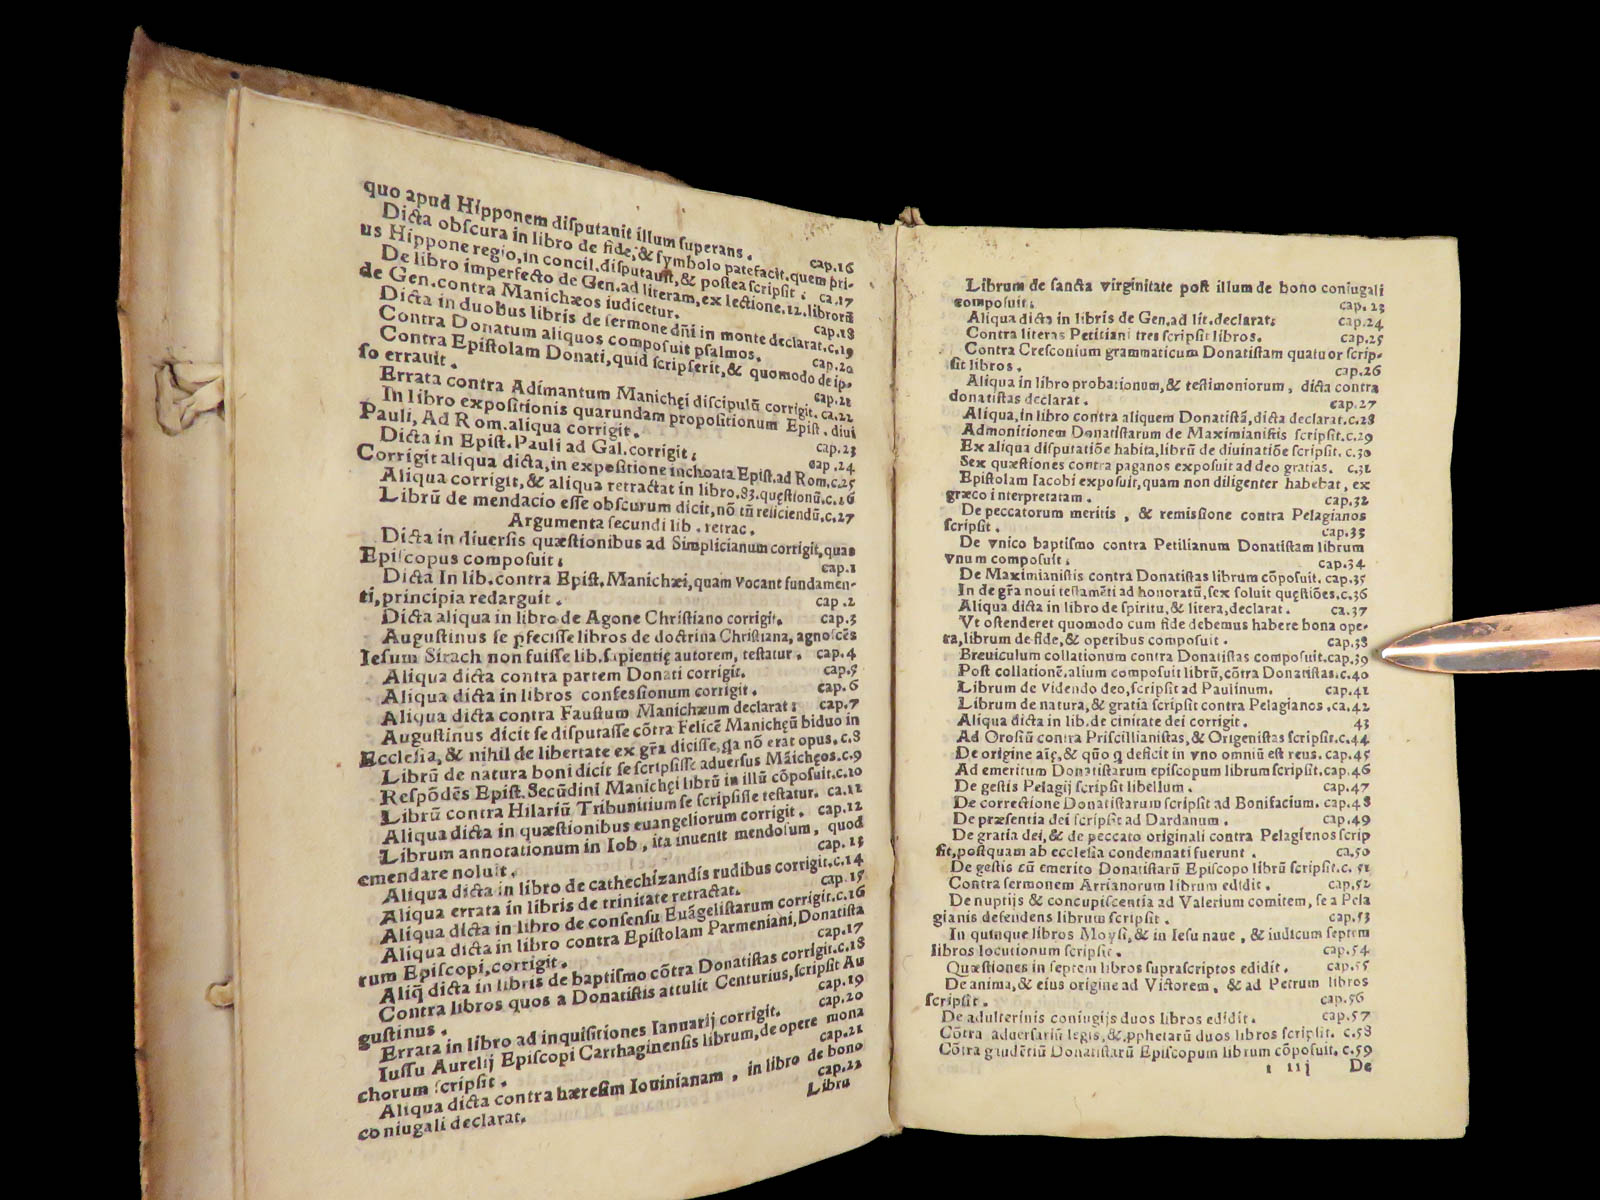 quo apud Hipponem disputauit illum superans. cap.16
Dicta obscura in libro de fide, & symbolo patefacit. quem pri-
us Hippone regio, in concil. disputauit, & postea scripsit. ca.17
De libro imperfecto de Gen. ad literam, ex lectione. 12. librorũ
de Gen. contra Manichæos iudicetur. cap.18
Dicta in duobus libris de sermone dñi in monte declarat. c.19
Contra Donatum aliquos composuit psalmos. cap.20
Contra Epistolam Donati, quid scripserit, & quomodo de ip-
so errauit. cap.21
Errata contra Adimantum Manichęi discipulũ corrigit. ca.22
In libro expositionis quarundam propositionum Epist. diui
Pauli, Ad Rom. aliqua corrigit. cap.23
Dicta in Epist. Pauli ad Gal. corrigit; cap.24
Corrigit aliqua dicta, in expositione inchoata Epist. ad Rom. c.25
Aliqua corrigit, & aliqua retractat in libro. 83. quęstionũ. c.26
Librũ de mendacio esse obscurum dicit, nõ tñ reiiciendũ. c.27
Argumenta secundi lib. retrac.
Dicta in diuersis quæstionibus ad Simplicianum corrigit, quas
Episcopus composuit; cap.1
Dicta In lib. contra Epist. Manichæi, quam vocant fundamen-
ti, principia redarguit. cap.2
Dicta aliqua in libro de Agone Christiano corrigit. cap.3
Augustinus se ꝑfecisse libros de doctrina Christiana, agnoscẽs
Iesum Sirach non fuisse lib. sapientię autorem, testatur. cap.4
Aliqua dicta contra partem Donati corrigit. cap.5
Aliqua dicta in libros confessionum corrigit. cap.6
Aliqua dicta contra Faustum Manichæum declarat; cap.7
Augustinus dicit se disputasse cõtra Felicẽ Manichęũ biduo in
Ecclesia, & nihil de libertate ex gr̃a dicisse, qa nõ erat opus. c.8
Librũ de natura boni dicit se scripsisse aduersus Mãichęos. c.9
Respõdẽs Epist. Secũdini Manichęi librũ in illũ cõposuit. c.10
Librũ contra Hilariũ Tribunitium se scripsisse testatur. ca.11
Aliqua dicta in quæstionibus euangeliorum corrigit. cap.12
Librum annotationum in Iob, ita inuenit mendosum, quod
emendare noluit. cap.13
Aliqua dicta in libro de cathechizandis rudibus corrigit. c.14
Aliqua errata in libris de trinitate retractat. cap.15
Aliqua dicta in libro de consensu Euãgelistarum corrigit. c.16
Aliqua dicta in libro contra Epistolam Parmeniani, Donatista
rum Episcopi, corrigit. cap.17
Aliq̃ dicta in libris de baptismo cõtra Donatistas corrigit. c.18
Contra libros quos a Donatistis attulit Centurius, scripsit Au
gustinus. cap.19
Errata in libro ad inquisitiones Ianuarij corrigit. cap.20
Iussu Aurelij Episcopi Carthaginensis librum, de opere mona
chorum scripsit. cap.21
Aliqua dicta contra hæresim Iouinianam, in libro de bono
coniugali declarat. cap.22
Libru
Librum de sancta virginitate post illum de bono coniugali
composuit; cap. 23
Aliqua dicta in libris de Gen. ad lit. declarat; cap.24
Contra literas Petitiani tres scripsit libros. cap.25
Contra Cresconium grammaticum Donatistam quatuor scrip-
sit libros. cap.26
Aliqua in libro probationum, & testimoniorum, dicta contra
donatistas declarat. cap.27
Aliqua, in libro contra aliquem Donatistã, dicta declarat. c.28
Admonitionem Donatistarum de Maximianistis scripsit. c.29
Ex aliqua disputatiõe habita, librũ de diuinatiõe scripsit. c.30
Sex quæstiones contra paganos exposuit ad deo gratias. c.31
Epistolam Iacobi exposuit, quam non diligenter habebat, ex
græco interpretatam. cap.32
De peccatorum meritis, & remissione contra Pelagianos
scripsit. cap.33
De vnico baptismo contra Petilianum Donatistam librum
vnum composuit; cap.34
De Maximianistis contra Donatistas librum cõposuit. cap.35
In de gr̃a noui testamẽti ad honoratũ, sex soluit quęstiões. c.36
Aliqua dicta in libro de spiritu, & litera, declarat. ca.37
Vt ostenderet quomodo cum fide debemus habere bona ope-
ra, librum de fide, & operibus composuit. cap.38
Breuiculum collationum contra Donatistas composuit. cap.39
Post collationẽ, alium composuit librũ, cõtra Donatistas. c.40
Librum de videndo deo, scripsit ad Paulinum. cap.41
Librum de natura, & gratia scripsit contra Pelagianos. ca.42
Aliqua dicta in lib. de ciuitate dei corrigit. 43
Ad Orosiũ contra Priscillianistas, & Origenistas scripsit. c.44
De origine aię, & quõ q deficit in vno omniũ est reus. cap.45
Ad emeritum Donatistarum episcopum librum scripsit. cap.46
De gestis Pelagij scripsit libellum. cap.47
De correctione Donatistarum scripsit ad Bonifacium. cap.48
De præsentia dei scripsit ad Dardanum. cap.49
De gratia dei, & de peccato originali contra Pelagienos scrip
sit, postquam ab ecclesia condemnati fuerunt. ca.50
De gestis cũ emerito Donatistarũ Episcopo librũ scripsit. c. 51
Contra sermonem Arrianorum librum edidit. cap.52
De nuptijs & concupiscentia ad Valerium comitem, se a Pela
gianis defendens librum scripsit. cap.53
In quinque libros Moysi, & in Iesu naue, & iudicum septem
libros locutionum scripsit. cap.54
Quæstiones in septem libros suprascriptos edidit. cap.55
De anima, & eius origine ad Victorem, & ad Petrum libros
scripsit. cap.56
De adulterinis coniugijs duos libros edidit. cap.57
Cõtra aduersariũ legis, & ꝓphetarũ duos libros scripsit. c.58
Cõtra gaudẽtiũ Donatistarũ Episcopum librum cõposuit. c.59
1 iij De